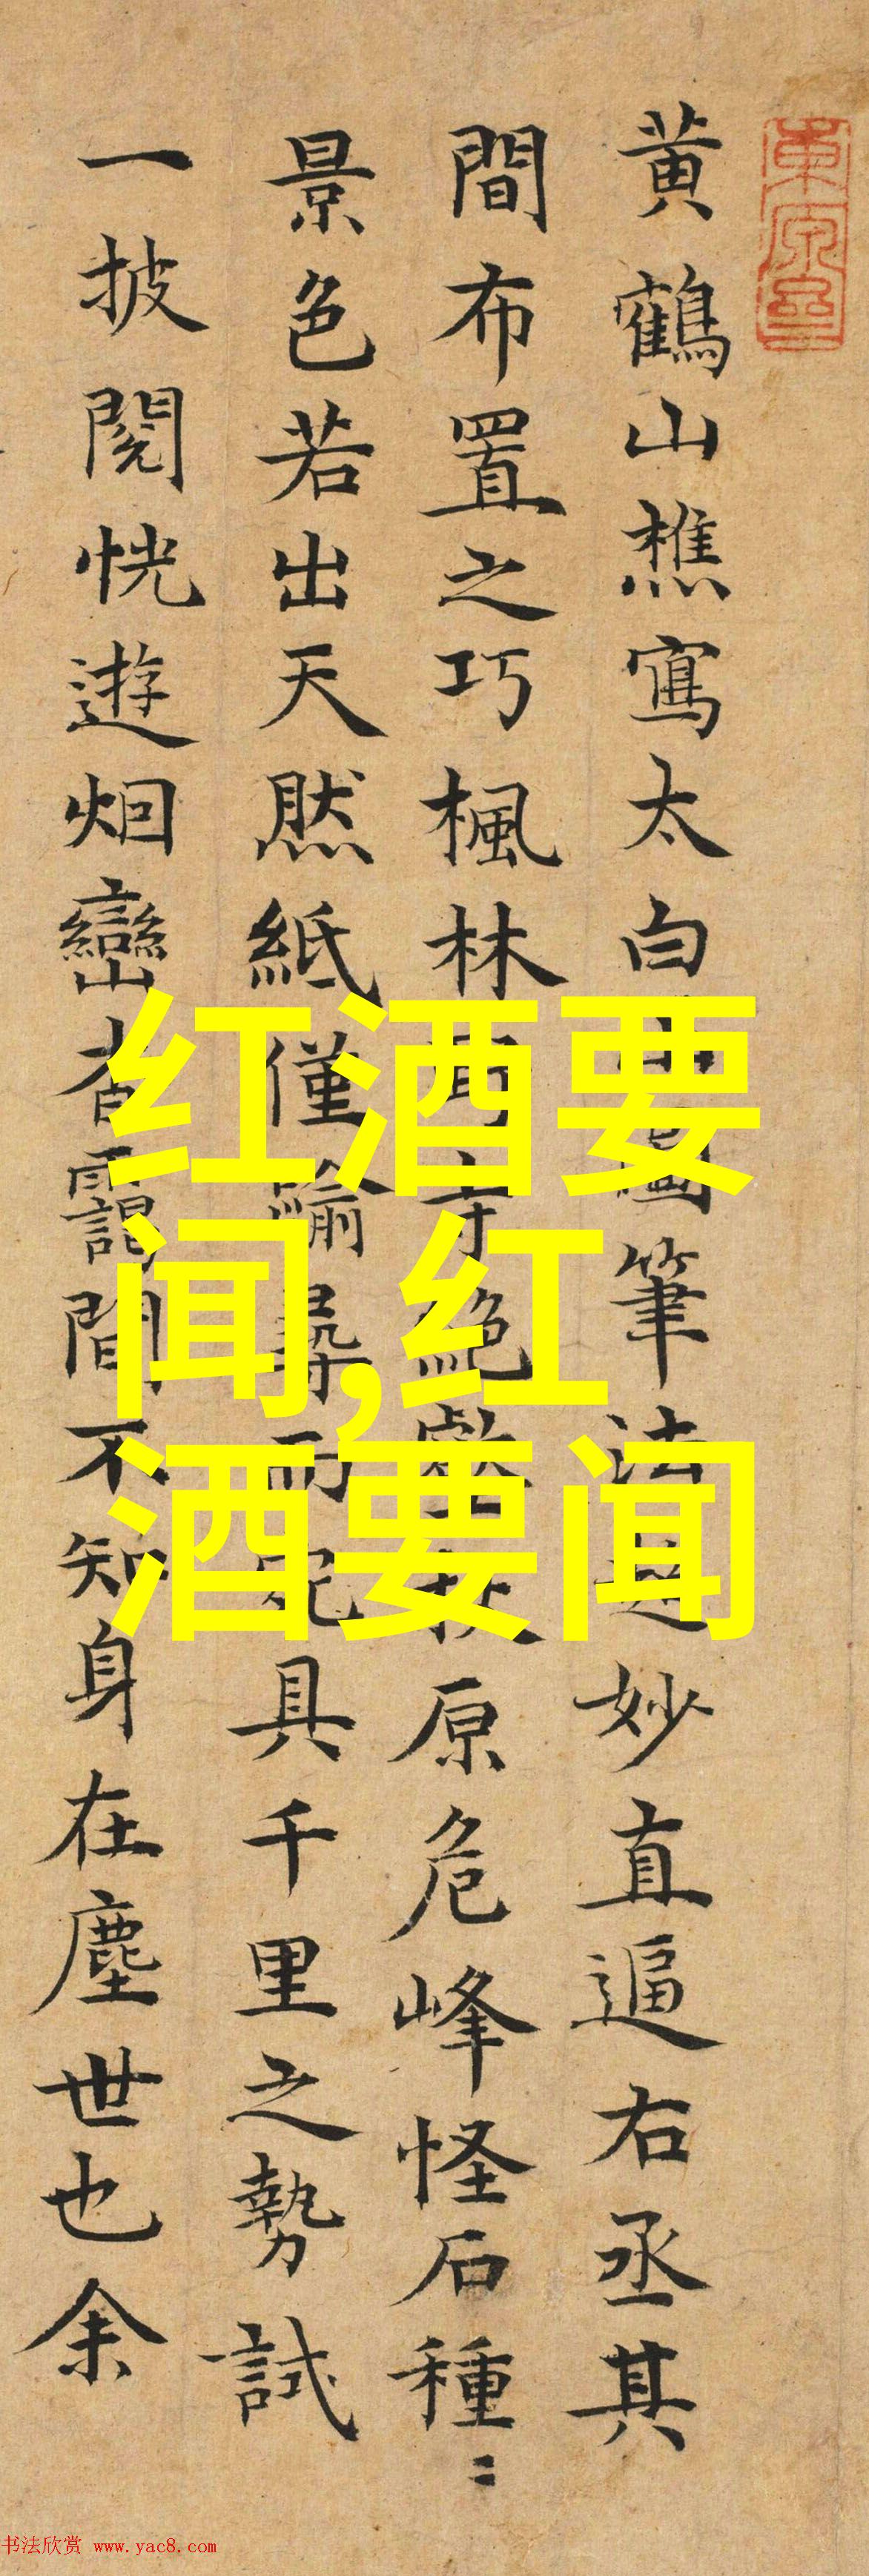 黄鶴山樵寫太白山圖筆法超妙直逼右丞其
間布置之巧楓林古寺絶壑秋原危峰怪石種〻
景色若出天然紙僅踰尋而宛具千里之勢試
一披閱恍遊烟巒杳靄間不知身在塵世也余
红酒要
闻,红
酒要闻
书法欣赏 www.yac8.com